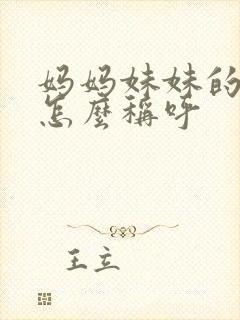 妈妈妹妹的
怎麼稱呼
王立